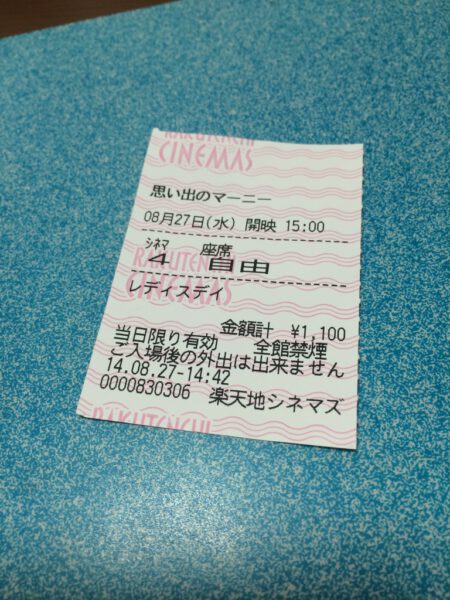 RAKUTENCHI
CINEMAS
思い出のマーニー
08月27日(水) 開映 15:00
シネマ 座席
4 自由
RAKUTENCHI
CINEMAS
レディスデイ
金額計 ¥1,100
当日限り有効 全館禁煙
ご入場後の外出は出来ません
14.08.27-14:42
0000830306 楽天地シネマズ
RAKUTENCHI